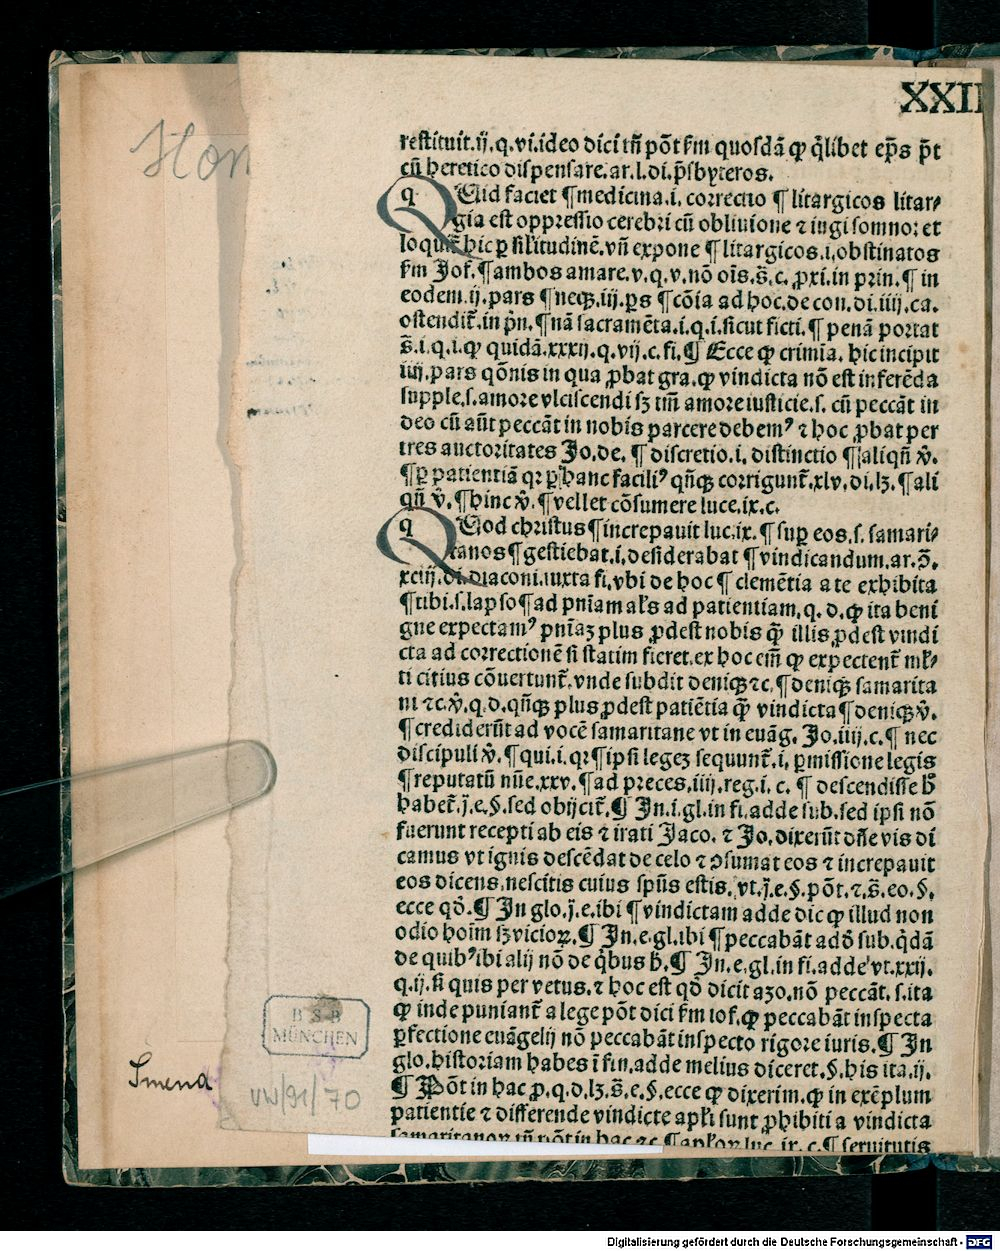 XXII
Hon
restituit.ij.q.vi.ideo dici tñ põt ẜm quosdã ꝙ q̇libet ep̃s p̃t
cũ heretico dispensare.ar.l.di.p̃sbyteros.
QUid faciet ¶medicina.i.correctio ¶litargicos litar⸗
gia est oppressio cerebri cũ obliuione ⁊ iugi somno: et
loquit̃ hic ꝑ sil̃itudinẽ.vñ expone ¶litargicos.i.obstinatos
ẜm Jos.¶ambos amare.v.q.v.nõ oĩs.s̃.c.ꝓxi.in prin.¶in
eodem.ij.pars ¶neqꝫ.iij.ꝑs ¶cõia ad hoc.de con.di.iiij.ca.
ostendit̃.in p̃n.¶nã sacramẽta.i.q.i.sicut ficti.¶penã portat
s̃.i.q.i.ꝙ quidã.xxxij.q.vij.c.fi.¶ Ecce ꝙ crimĩa.hic incipit
iiij.pars qõnis in qua ꝓbat gra.ꝙ vindicta nõ est inferẽda
supple.s.amore vlciscendi sꝫ tm̃ amore iusticie.s. cũ peccãt in
deo cũ aũt peccãt in nobis parcere debemꝰ ⁊ hoc ꝓbat per
tres auctoritates Jo.de.¶discretio.i.distinctio ¶aliqñ v̇.
¶ꝑ patientiã qꝛ ꝑ hanc faciliꝰ qñqꝫ corrigunt̃.xlv.di.lꝫ.¶ali
qñ v̇.¶hinc v̇.¶vellet cõsumere luce.ix.c.
QUod christus ¶increpauit luc.ix.¶suꝑ eos.s.samari⸗
tanos ¶gestiebat.i.desiderabat ¶vindicandum.ar.ↄ̃.
xciij.di.diaconi.iuxta fi.vbi de hoc ¶clemẽtia a te exhibita
¶tibi.s.lapso ¶ad pñiam al̃s ad patientiam.q.d.ꝙ ita beni
gne expectamꝰ pñiaꝫ plus ꝓdest nobis q̃ꝫ illis ꝓdest vindi
cta ad correctionẽ si statim fieret.ex hoc em̃ ꝙ expectent̃ ml̃⸗
ti citius cõuertunt̃.vnde subdit deniqꝫ ⁊c.¶deniqꝫ samarita
ni ⁊c.v̇.q.d.qñqꝫ plus ꝓdest patiẽtia q̃ꝫ vindicta ¶deniqꝫ v̇.
¶crediderũt ad vocẽ samaritane vt in euãg.Jo.iiij.c.¶nec
discipuli v̇.¶qui.i.qꝛ ¶ipsi legeꝫ sequunt̃.i.ꝑmissione legis
¶reputatũ nũe.xxv.¶ad preces.iiij.reg.i.c.¶descendisse b̃
habet̃.j̃.e.§.sed obijcit̃.¶ Jn.i.gl.in fi.adde sub.sed ipsi nõ
fuerunt recepti ab eis ⁊ irati Jaco.⁊ Jo.dixerũt dñe vis di
camus vt ignis descẽdat de celo ⁊ ↄsumat eos ⁊ increpauit
eos dicens.nescitis cuius sp̃us estis.vt.j̃.e.§.põt.⁊.s̃.eo.§.
ecce qđ.¶ Jn glo.j̃.e.ibi ¶vindictam adde dic ꝙ illud non
odio hoim sꝫ vicioꝝ.¶ Jn.e.gl.ibi ¶peccabãt adđ sub.q̇dã
de quibꝰ ibi alij nõ de q̇bus b̃.¶ Jn.e.gl.in fi.adde vt.xxij.
q.ij.si quis per vetus.⁊ hoc est qđ dicit azo.nõ peccãt.s.ita
ꝙ inde puniant̃ a lege põt dici ẜm ios.ꝙ peccabãt inspecta
ꝑfectione euãgelij nõ peccabãt inspecto rigore iuris.¶ Jn
glo.historiam habes ĩ fin.adde melius diceret.§.his ita.ij.
¶ Põt in hac ꝓ.q.d.lꝫ.s̃.e.§.ecce ꝙ dixerim.ꝙ in exẽplum
patientie ⁊ differende vindicte apl̃i sunt ꝓhibiti a vindicta
samaritanoꝝ tñ põt in hac ⁊c.¶apl̃oꝝ luc.ix.c.¶seruitutis
BSB
MÜNCHEN
Smend
VW/91/70
Digitalisierung gefördert durch die Deutsche Forschungsgemeinschaft - DFG